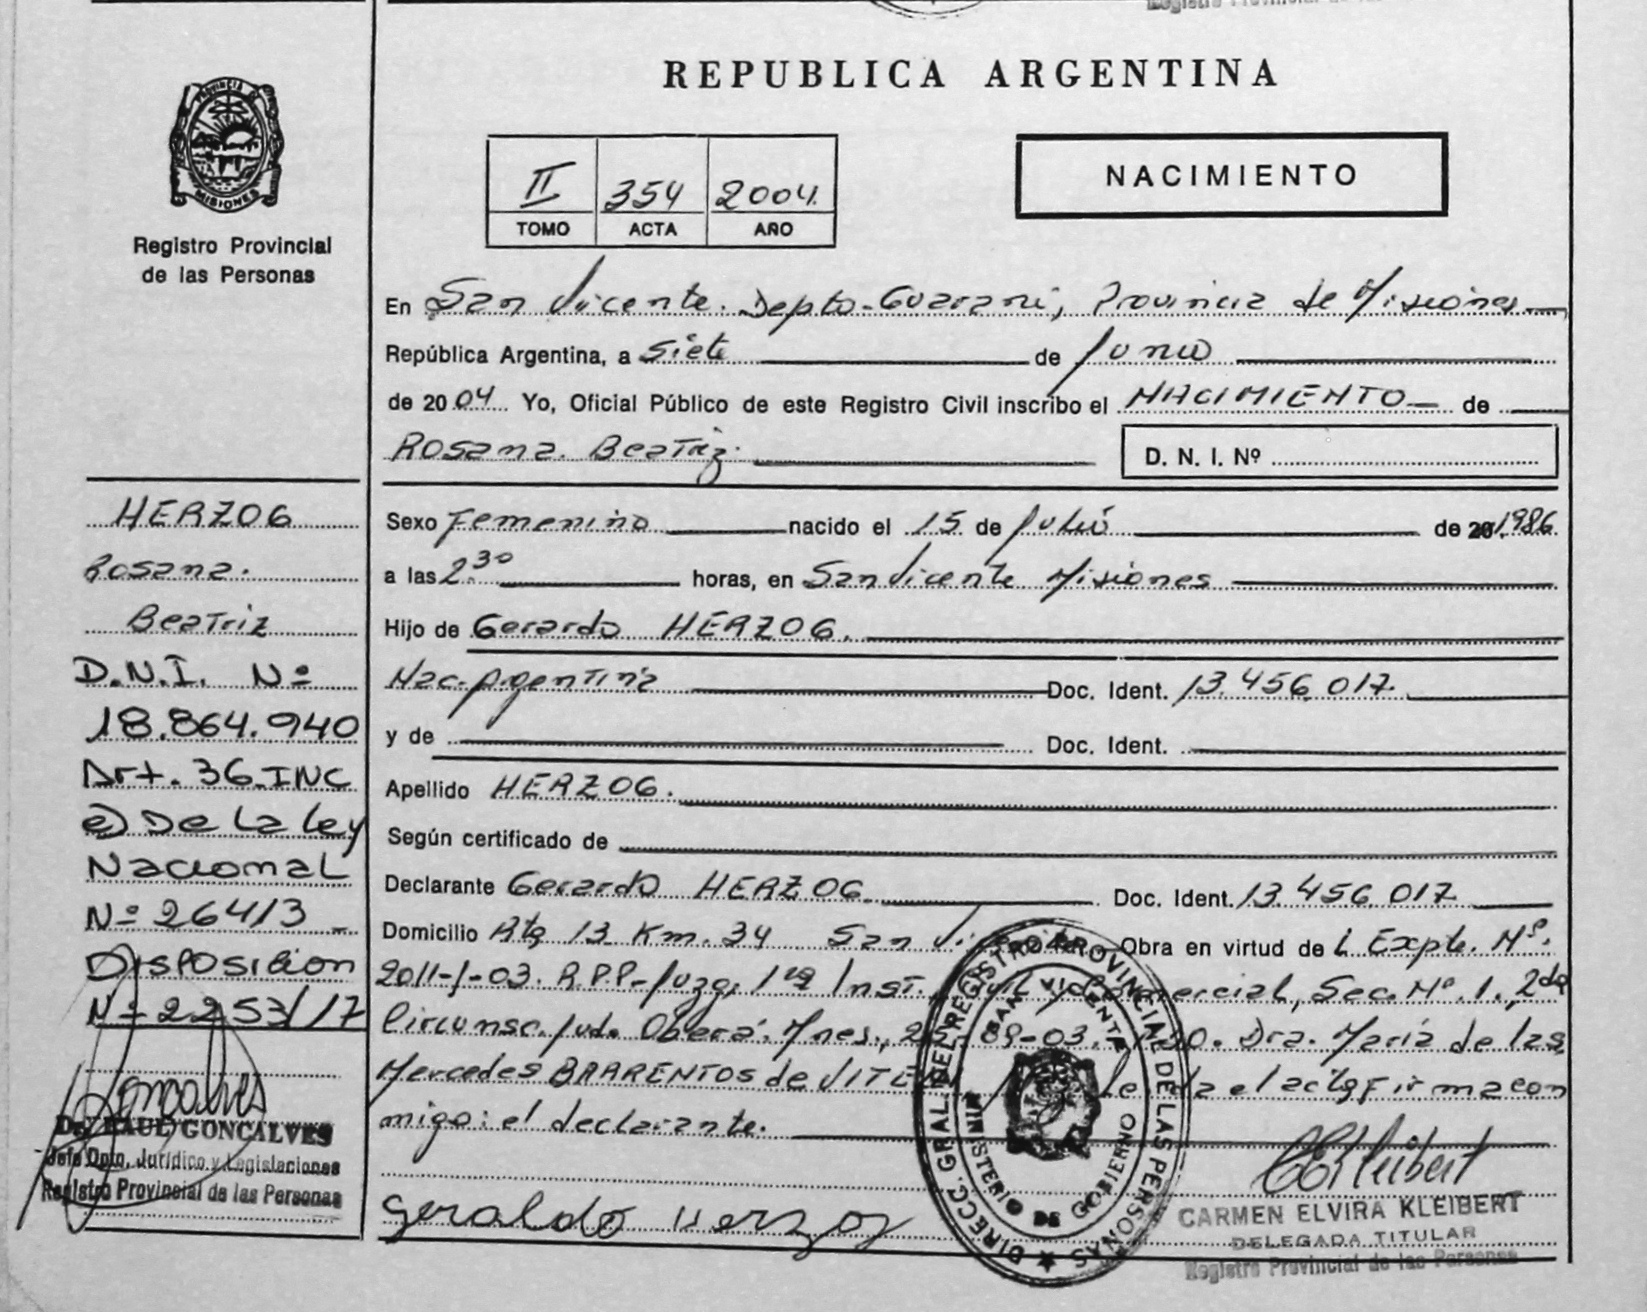 Registro Provincial de las
REPUBLICA ARGENTINA
PROVINCIA DE
MISIONES
Registro Provincial
de las Personas
II 354 2004.
TOMO ACTA AÑO
NACIMIENTO
En San Vicente. Depto-Guarani, Provincia de Misiones
República Argentina, a siete de Junio
de 2004 Yo, Oficial Público de este Registro Civil inscribo el NACIMIENTO de
Rosana. Beatriz. D. N. I. Nº
HERZOG
Rosana.
Beatriz
D.N.I. Nº
18.864.940
Art. 36 INC
e) De La Ley
Nacional
Nº 26413
Disposicion
Nº 2253/17
Goncalves
Dr. RAUL GONCALVES
Jefe Dpto. Jurídico y Legislaciones
Registro Provincial de las Personas
Sexo Femenino nacido el 15 de Julio de 20 1986
a las 2.30 horas, en San Vicente Misiones
Hijo de Gerardo HERZOG.
Nac. Argentina Doc. Ident. 13.456.017.
y de Doc. Ident.
Apellido HERZOG.
Según certificado de
Declarante Gerardo HERZOG. Doc. Ident. 13.456.017
Domicilio Rta 13 Km. 34 San Obra en virtud de L Expte. Nº.
2011-J-03. R.P.P.-Juzg. 1ra Inst. Comercial, Sec. Nº.1. 2da
Circunsc. Jud. Oberá. Mnes., 03. Dra. María de las
Mercedes BARRENTOS de el acta firma con
migo: el declarante.
DIREC. GRAL. DEL REGISTRO PROVINCIAL DE LAS PERSONAS
SAN VICENTE
MINISTERIO DE GOBIERNO
Geraldo Herzog
CEKleibert
CARMEN ELVIRA KLEIBERT
DELEGADA TITULAR
Registro Provincial de las Personas